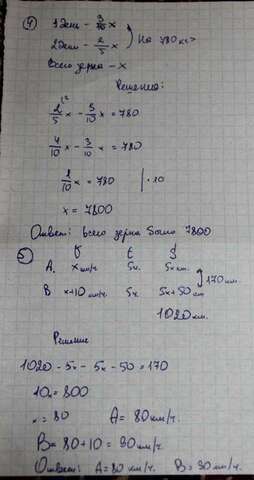 ④ 1 день - 3/10 x
2 день - 2/5 x } на 780 кг >
Всего зерна - x
Решение:
2/5 x - 3/10 x = 780
4/10 x - 3/10 x = 780
1/10 x = 780 | · 10
x = 7800
Ответ: всего зерна было 7800
⑤ V t S
A. x км/ч. 5ч. 5x км. } 170 км.
B x+10 км/ч 5ч 5x+50 км
1020 км.
Решение
1020 - 5x - 5x - 50 = 170
10x = 800
x = 80 A = 80 км/ч.
B = 80 + 10 = 90 км/ч.
Ответ: A = 80 км/ч. B = 90 км/ч.